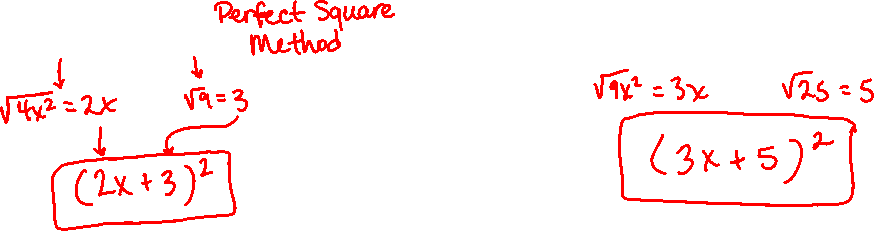 Perfect Square
Method
√4x² = 2x √9 = 3
(2x + 3)²
√9x² = 3x √25 = 5
(3x + 5)²